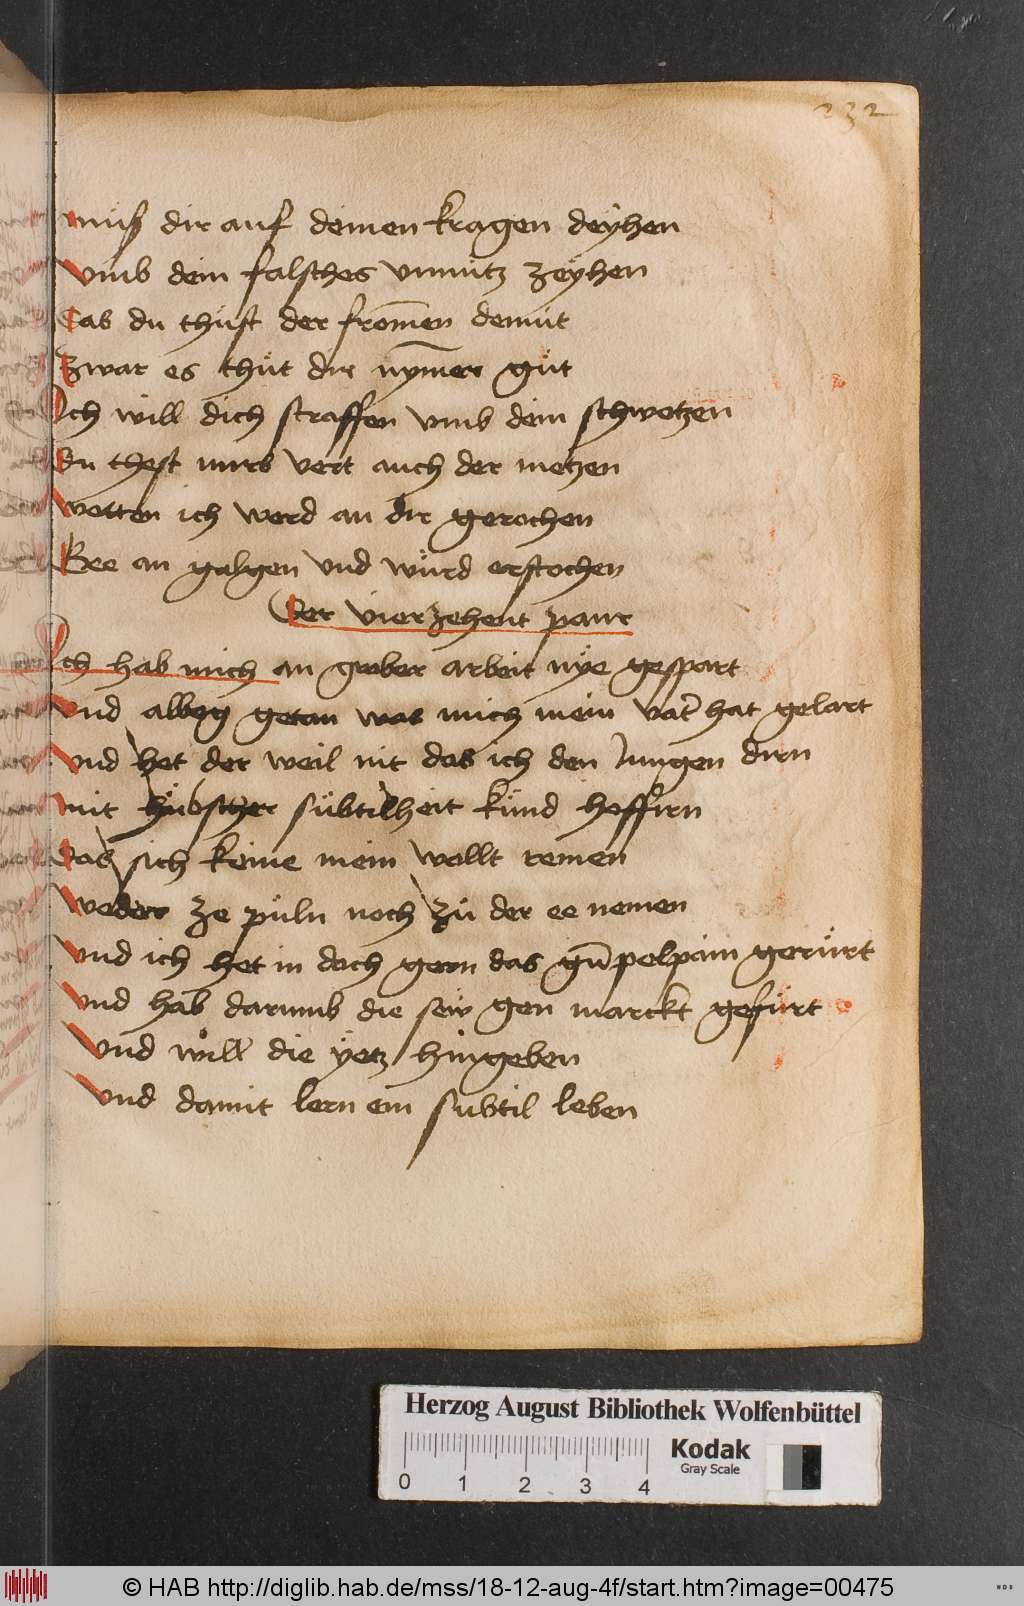 232
muß dir auf deinen kragen deyhen
vmb dein falsches vnnütz zeyhen
Das du thüst der from̄en demüt
Zwar es thüt dir nym̄er güt
Ich will dich straffen vmb dein schwetzen
Du thest mirs vert auch der metzen
wetten ich werd an dir gerochen
Gee an galgen vnd würd erstochen
Der vierzehent paur
Ich hab mich an grober arbeit nye gespart
vnd albeg getan was mich mein vat' hat gelart
vnd het der weil nit das ich den jungen dirn
mit hübscher sübtilheit künd hoffirn
Das sich keine mein wollt remen
weder ze püln noch zü der ee nemen
vnd ich het in doch gern das gu̅pelpain gerürt
vnd hab darumb die sew gen marckt gefürt
vnd will die yetz hingeben
vnd damit lern ein subtil leben
Herzog August Bibliothek Wolfenbüttel
Kodak
Gray Scale
0 1 2 3 4
© HAB http://diglib.hab.de/mss/18-12-aug-4f/start.htm?image=00475